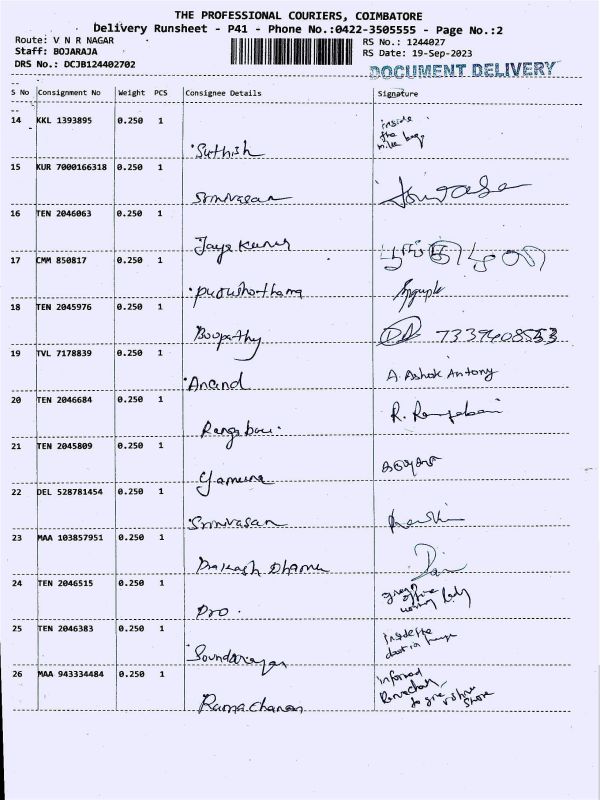 THE PROFESSIONAL COURIERS, COIMBATORE
Delivery Runsheet - P41 - Phone No.:0422-3505555 - Page No.:2
Route: V N R NAGAR
RS No.: 1244027
Staff: BOJARAJA
RS Date: 19-Sep-2023
DRS No.: DCJB124402702
DOCUMENT DELIVERY
S No Consignment No Weight PCS Consignee Details Signature
14 KKL 1393895 0.250 1
inside
the
milk bag
Sathish
15 KUR 7000166318 0.250 1
Srinivasan
16 TEN 2046063 0.250 1
Jaya Kumar
17 CMM 850817 0.250 1
Purushothama
18 TEN 2045976 0.250 1
Boopathy 7339408553
19 TVL 7178839 0.250 1
Anand A. Ashok Antony
20 TEN 2046684 0.250 1
Ranga bau. R.
21 TEN 2045809 0.250 1
Yamuna
22 DEL 528781454 0.250 1
Srinivasan
23 MAA 103857951 0.250 1
Prakash Dharma
24 TEN 2046515 0.250 1
Pro.
25 TEN 2046383 0.250 1
Inside the
Soundarajan
26 MAA 943334484 0.250 1
Informed
Ramachanan